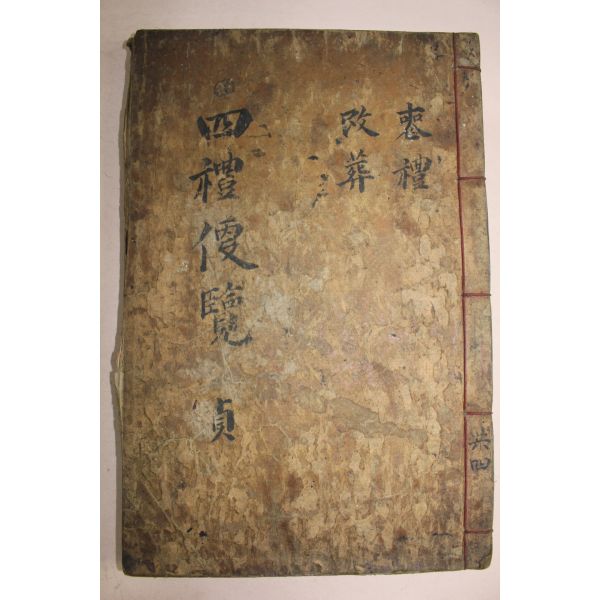 喪禮
改葬
四禮便覽 貞
共四